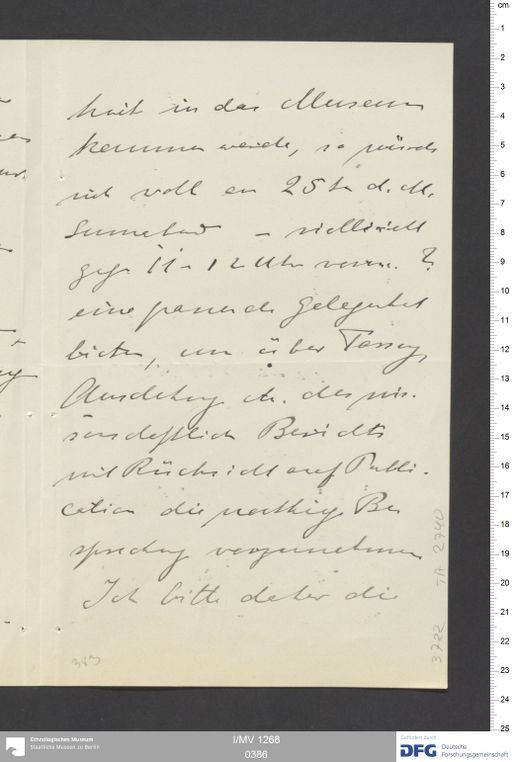 heit in das Museum
kommen werde, so würde
sich wohl am 25ten d. M.
Sonnabend – vielleicht
gegen 11–12 Uhr vorm. ?
eine passende Gelegenheit
bieten, um über Fassung,
Ausdehnung etc. des wis-
senschaftlichen Berichts
mit Rücksicht auf Publi-
cation die nöthige Be
sprechung vorzunehmen
Ich bitte daher die
383
3722 TA 2740
cm
1
2
3
4
5
6
7
8
9
10
11
12
13
14
15
16
17
18
19
20
21
22
23
24
25
Ethnologisches Museum
Staatliche Museen zu Berlin
I/MV 1268
0386
Gefördert durch
DFG Deutsche
Forschungsgemeinschaft